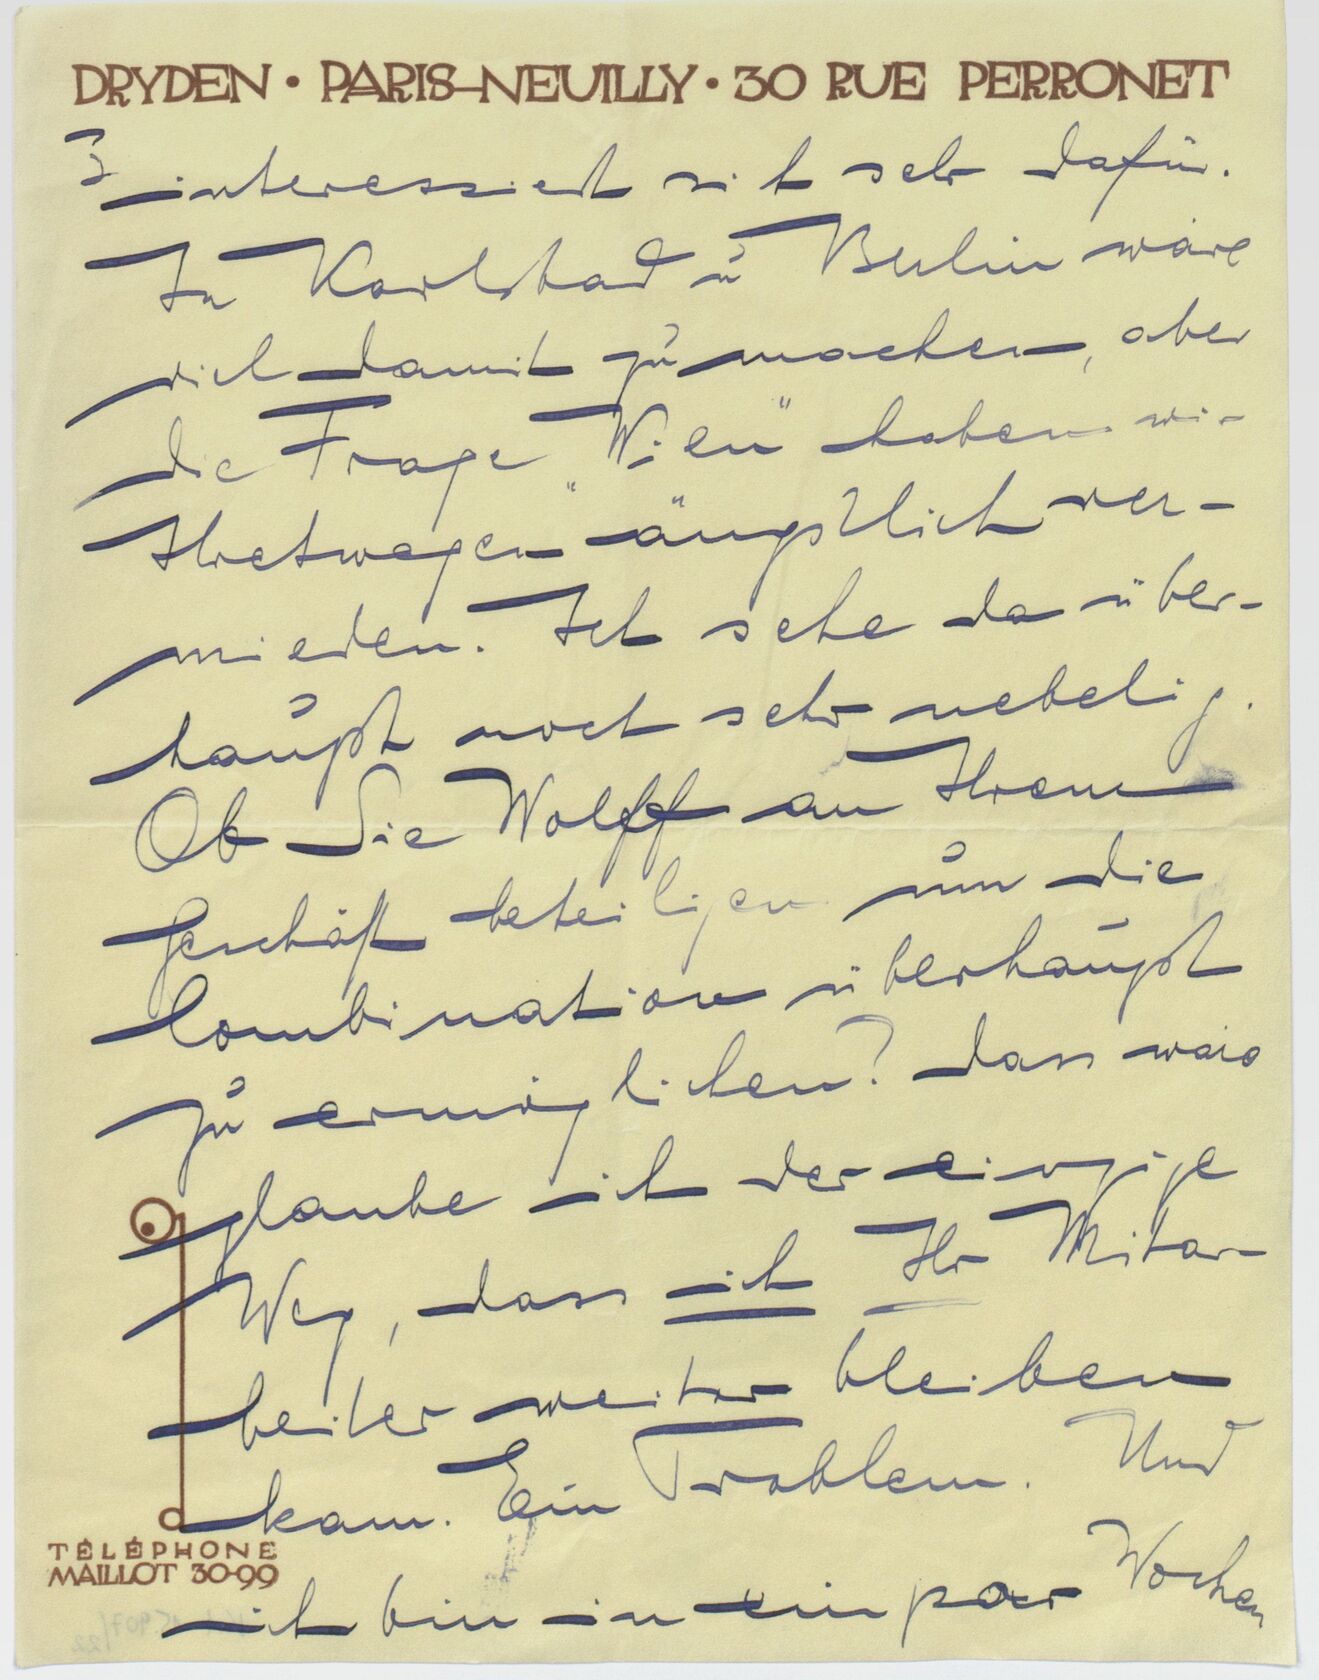 DRYDEN · PARIS-NEUILLY · 30 RUE PERRONET
3
interessiert sich sehr dafür.
In Karlsbad u Berlin wäre
viel damit zu machen, aber
die Frage "Wien" haben wir
Ihretwegen ängstlich ver-
mieden. Ich sehe da über-
haupt noch sehr nebelig.
Ob Sie Wolff an Ihrem
Geschäft beteiligen um die
Combination überhaupt
zu ermöglichen? Dass wäre
glaube ich der einzige
Weg, dass ich Ihr Mitar-
beiter weiter bleiben
kann. Ein Problem. Und
ich bin in ein paar Wochen
TÉLÉPHONE
MAILLOT 30-99